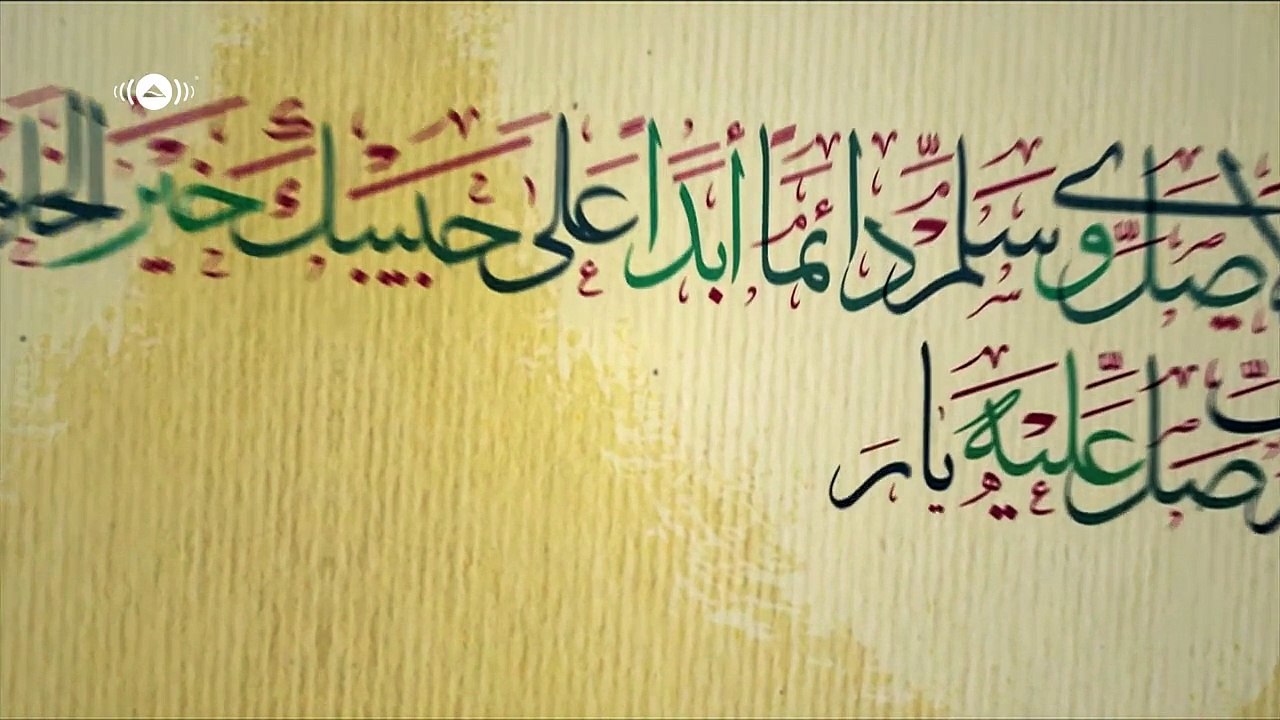 صَلِّ وَسَلِّمْ دَائِمًا أَبَدًا عَلَى حَبِيبِكَ خَيْرِ
صَلِّ عَلَيْهِ يَا رَ